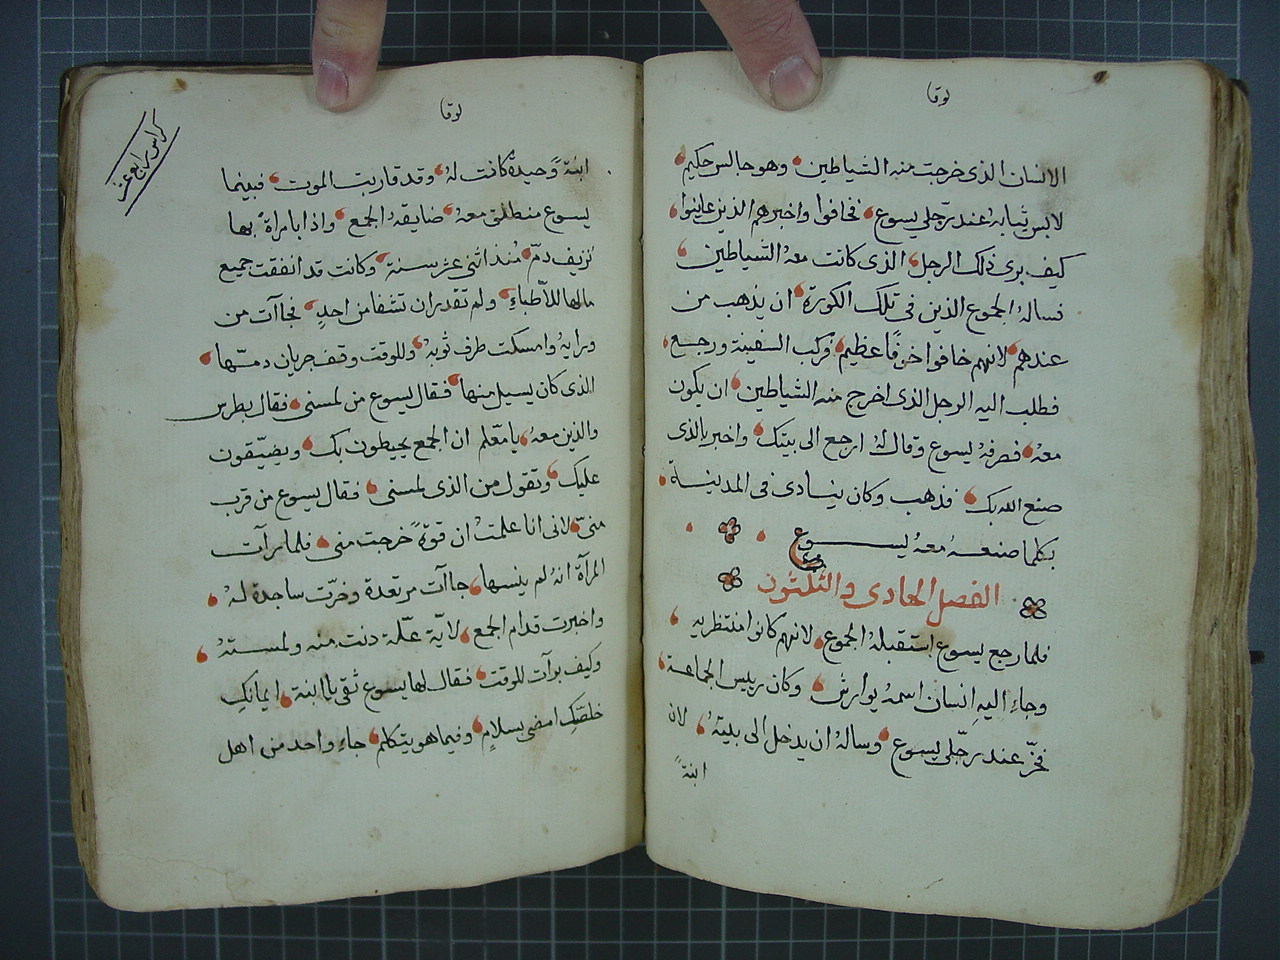 لوقا
الانسان الذى خرجت منه الشياطين وهو جالس حكيم
لابس ثيابه عند رجلي يسوع فخافوا واخبرهم الذين عاينوا
كيف برى ذلك الرجل الذى كانت معهُ الشياطين
فسالهُ الجموع الذين فى تلك الكورة ان يذهب من
عندهم لانهم خافوا خوفًا عظيم فركب السفينة ورجع
فطلب اليه الرجل الذى اخرج منه الشياطين ان يكون
معهُ فصرفهُ يسوع وقال لهُ ارجع الى بيتك واخبر بالذى
صنع الله بك فذهب وكان ينادى فى المدينة
بكلما صنعهُ معهُ يسوع
الفصل الحادى والثلثون
فلما رجع يسوع استقبلهُ الجموع لانهم كانوا منتظريه
وجاء اليهِ انسان اسمهُ يوارش وكان رييس الجماعة
فخرّ عند رجلى يسوع وسالهُ ان يدخل الى بيتهُ لان
ابنةً
لوقا
كراس رابع عشر
ابنةً وحيدةً كانت لهُ وقد قاربت الموت فبينما
يسوع منطلق معهُ ضايقهُ الجمع واذا بامراة بها
نزيف دمّ مُنذ اثنى عشر سنة وكانت قد انفقت جميع
مالها للأطباءِ ولم تقدر ان تشفا من احدٍ فجاآت من
ورايهُ وامسكت طرف ثوبهُ وللوقت وقف جريان دمها
الذى كان يسيل منها فقال يسوع من لمسنى فقال بطرس
والذين معهُ يا معّلم ان الجمع يحيطون بك ويضيّقون
عليك وتقول من الذى لمسنى فقال يسوع من قرب
منىّ لانى انا علمتُ ان قوةً خرجت منى فلما رآت
المرآة انهُ لم ينسها جاآت مرتعدة وخرّت ساجدة لهُ
واخبرت قدام الجمع لايّة علّة دنت منه ولمستهُ
وكيف برآت للوقت فقال لها يسوع ثقى يا ابنة ايمانكِ
خلصّكِ امضى بسلامٍ وفيما هو يتكلم جاء واحد من اهل